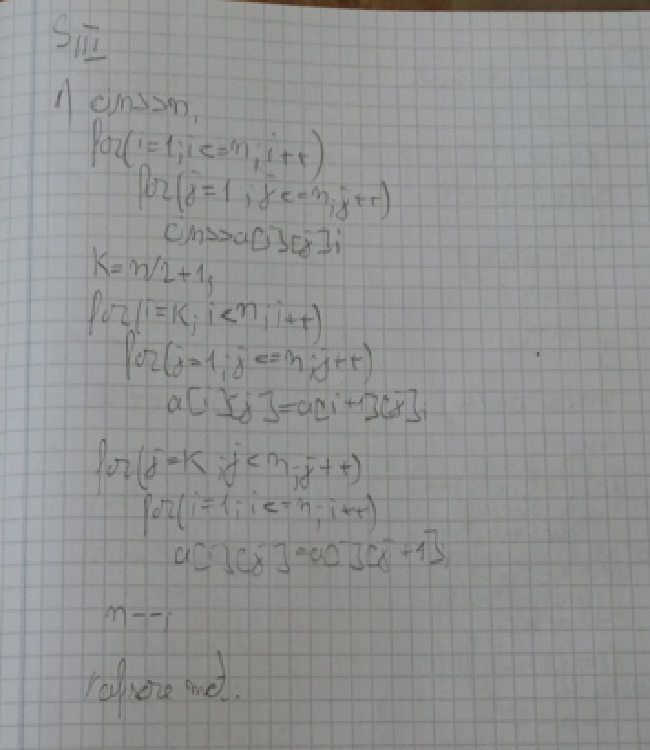 SIII
1) cin>>n;
for(i=1;i<=n;i++)
for(j=1;j<=n;j++)
cin>>a[i][j];
k=n/2+1;
for(i=k;i<n;i++)
for(j=1;j<=n;j++)
a[i][j]=a[i+1][j];
for(j=k;j<n;j++)
for(i=1;i<=n;i++)
a[i][j]=a[i][j+1];
n--;
afisare mat.